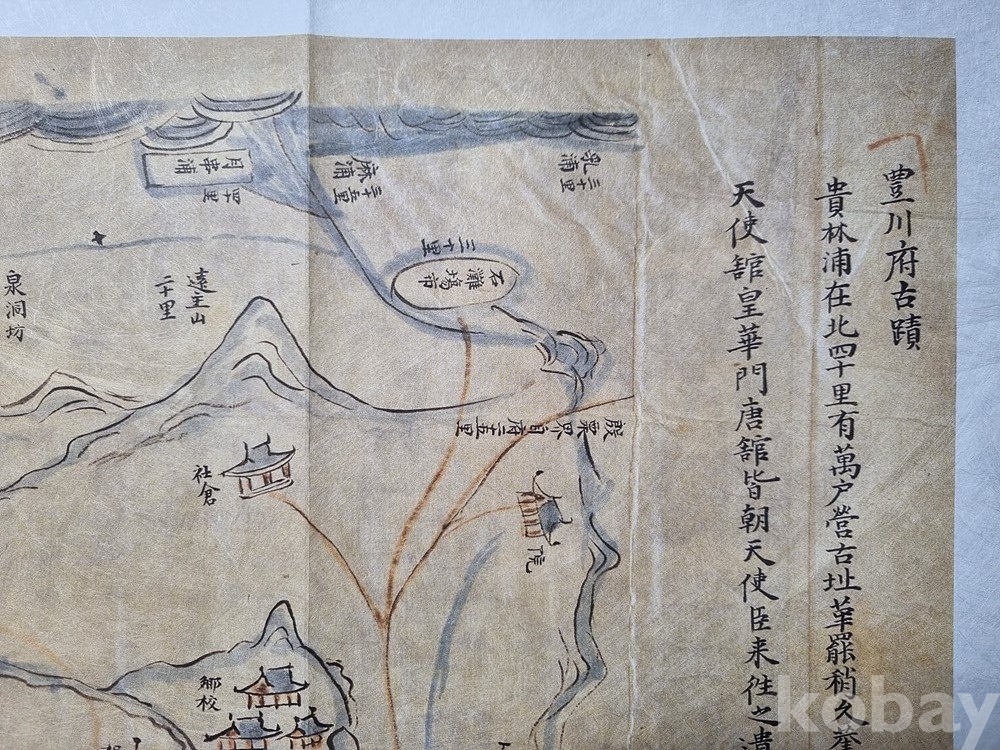 豊川府古蹟
貴林浦在北四十里有萬户營古址革罷稍久
天使舘皇華門唐舘皆朝天使臣来徃之遺
乳浦
三十里
麻浦
三十五里
月串浦
四十里
石灘塲市
三十里
遠主山
二十里
泉洞坊
殷栗界自府二十五里
社倉
院
鄉校
kobay